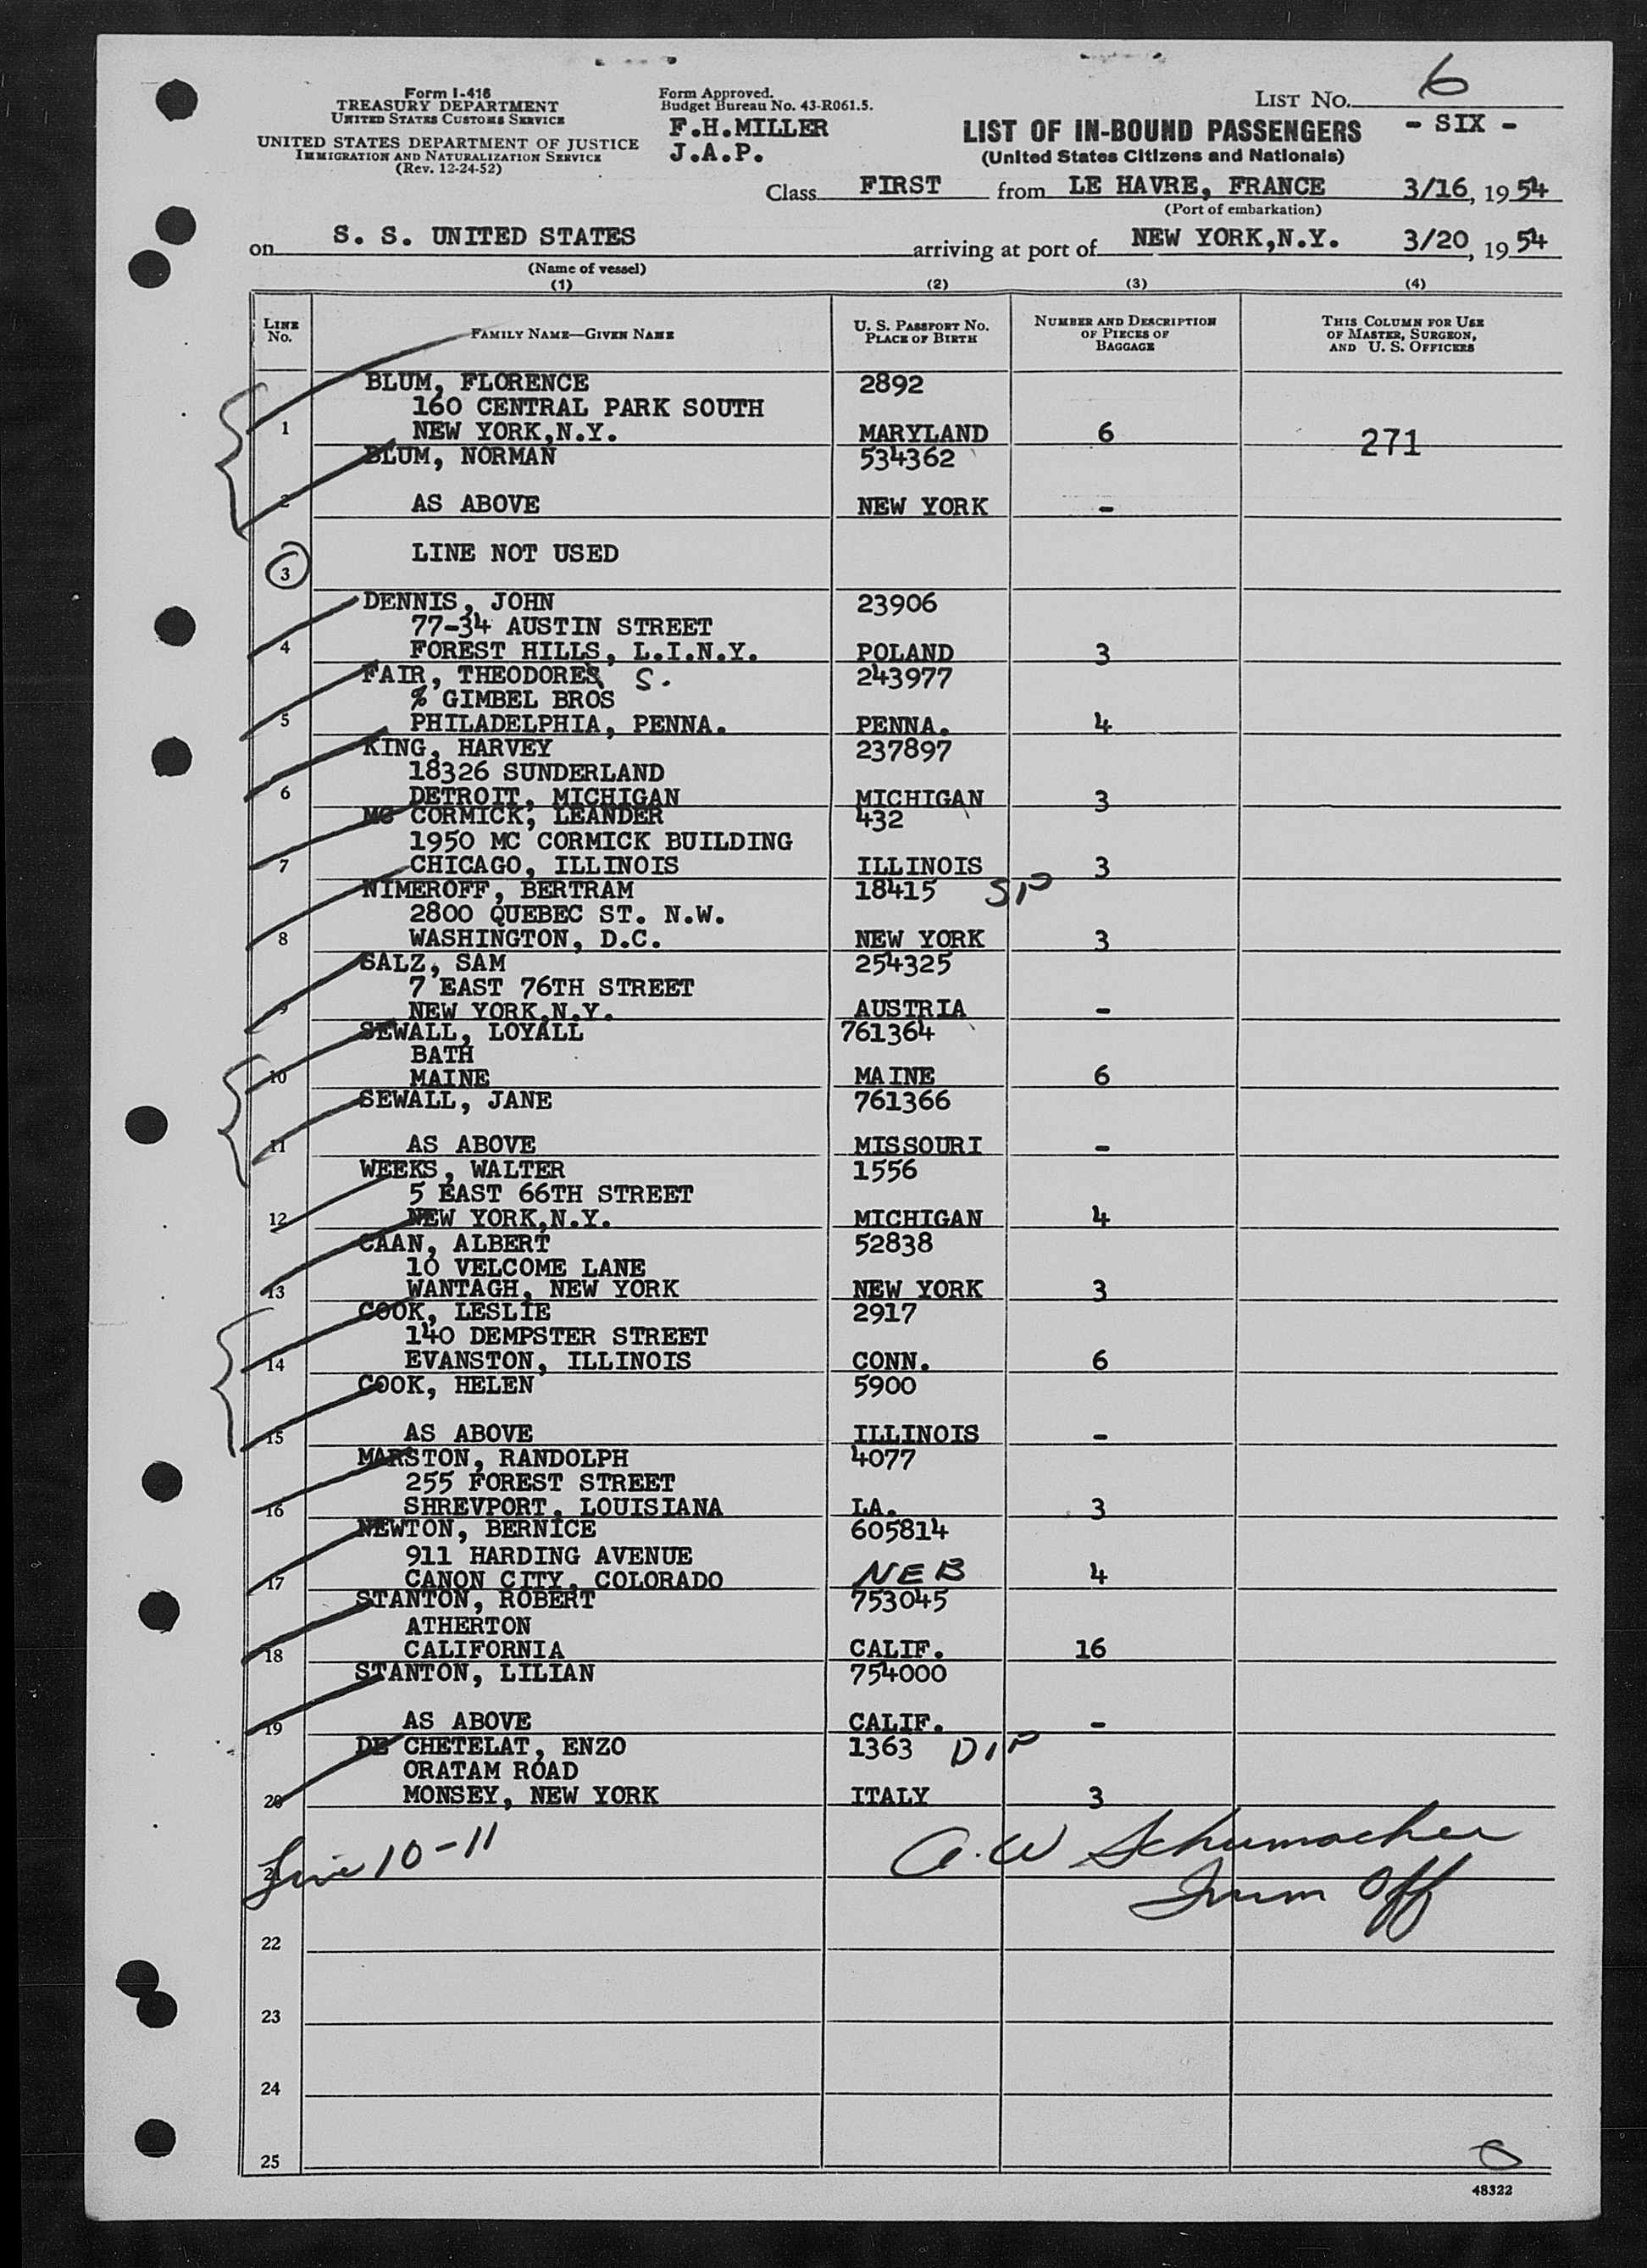 Form I-418
TREASURY DEPARTMENT
UNITED STATES CUSTOMS SERVICE
UNITED STATES DEPARTMENT OF JUSTICE
IMMIGRATION AND NATURALIZATION SERVICE
(Rev. 12-24-52)
Form Approved.
Budget Bureau No. 43-R061.5.
F.H.MILLER
J.A.P.
LIST NO. 6
- SIX -
LIST OF IN-BOUND PASSENGERS
(United States Citizens and Nationals)
Class FIRST from LE HAVRE, FRANCE 3/16, 1954
(Port of embarkation)
on S. S. UNITED STATES arriving at port of NEW YORK,N.Y. 3/20, 1954
(Name of vessel)
(1) (2) (3) (4)
LINE No. FAMILY NAME—GIVEN NAME U. S. PASSPORT NO. PLACE OF BIRTH NUMBER AND DESCRIPTION OF PIECES OF BAGGAGE THIS COLUMN FOR USE OF MASTER, SURGEON, AND U. S. OFFICERS
BLUM, FLORENCE 2892
160 CENTRAL PARK SOUTH
1 NEW YORK,N.Y. MARYLAND 6 271
BLUM, NORMAN 534362
2 AS ABOVE NEW YORK -
3 LINE NOT USED
DENNIS, JOHN 23906
77-34 AUSTIN STREET
4 FOREST HILLS, L.I.N.Y. POLAND 3
FAIR, THEODORE S. 243977
% GIMBEL BROS
5 PHILADELPHIA, PENNA. PENNA. 4
KING, HARVEY 237897
18326 SUNDERLAND
6 DETROIT, MICHIGAN MICHIGAN 3
MC CORMICK, LEANDER 432
1950 MC CORMICK BUILDING
7 CHICAGO, ILLINOIS ILLINOIS 3
NIMEROFF, BERTRAM 18415 SP
2800 QUEBEC ST. N.W.
8 WASHINGTON, D.C. NEW YORK 3
SALZ, SAM 254325
7 EAST 76TH STREET
9 NEW YORK,N.Y. AUSTRIA -
SEWALL, LOYALL 761364
BATH
10 MAINE MAINE 6
SEWALL, JANE 761366
11 AS ABOVE MISSOURI -
WEEKS, WALTER 1556
5 EAST 66TH STREET
12 NEW YORK,N.Y. MICHIGAN 4
CAAN, ALBERT 52838
10 VELCOME LANE
13 WANTAGH, NEW YORK NEW YORK 3
COOK, LESLIE 2917
140 DEMPSTER STREET
14 EVANSTON, ILLINOIS CONN. 6
COOK, HELEN 5900
15 AS ABOVE ILLINOIS -
MARSTON, RANDOLPH 4077
255 FOREST STREET
16 SHREVPORT, LOUISIANA LA. 3
NEWTON, BERNICE 605814
911 HARDING AVENUE
17 CANON CITY, COLORADO NEB 4
STANTON, ROBERT 753045
ATHERTON
18 CALIFORNIA CALIF. 16
STANTON, LILIAN 754000
19 AS ABOVE CALIF. -
DE CHETELAT, ENZO 1363 DIP
ORATAM ROAD
20 MONSEY, NEW YORK ITALY 3
21 Line 10-11 A.W Schumacher
Imm Off
22
23
24
25
48322